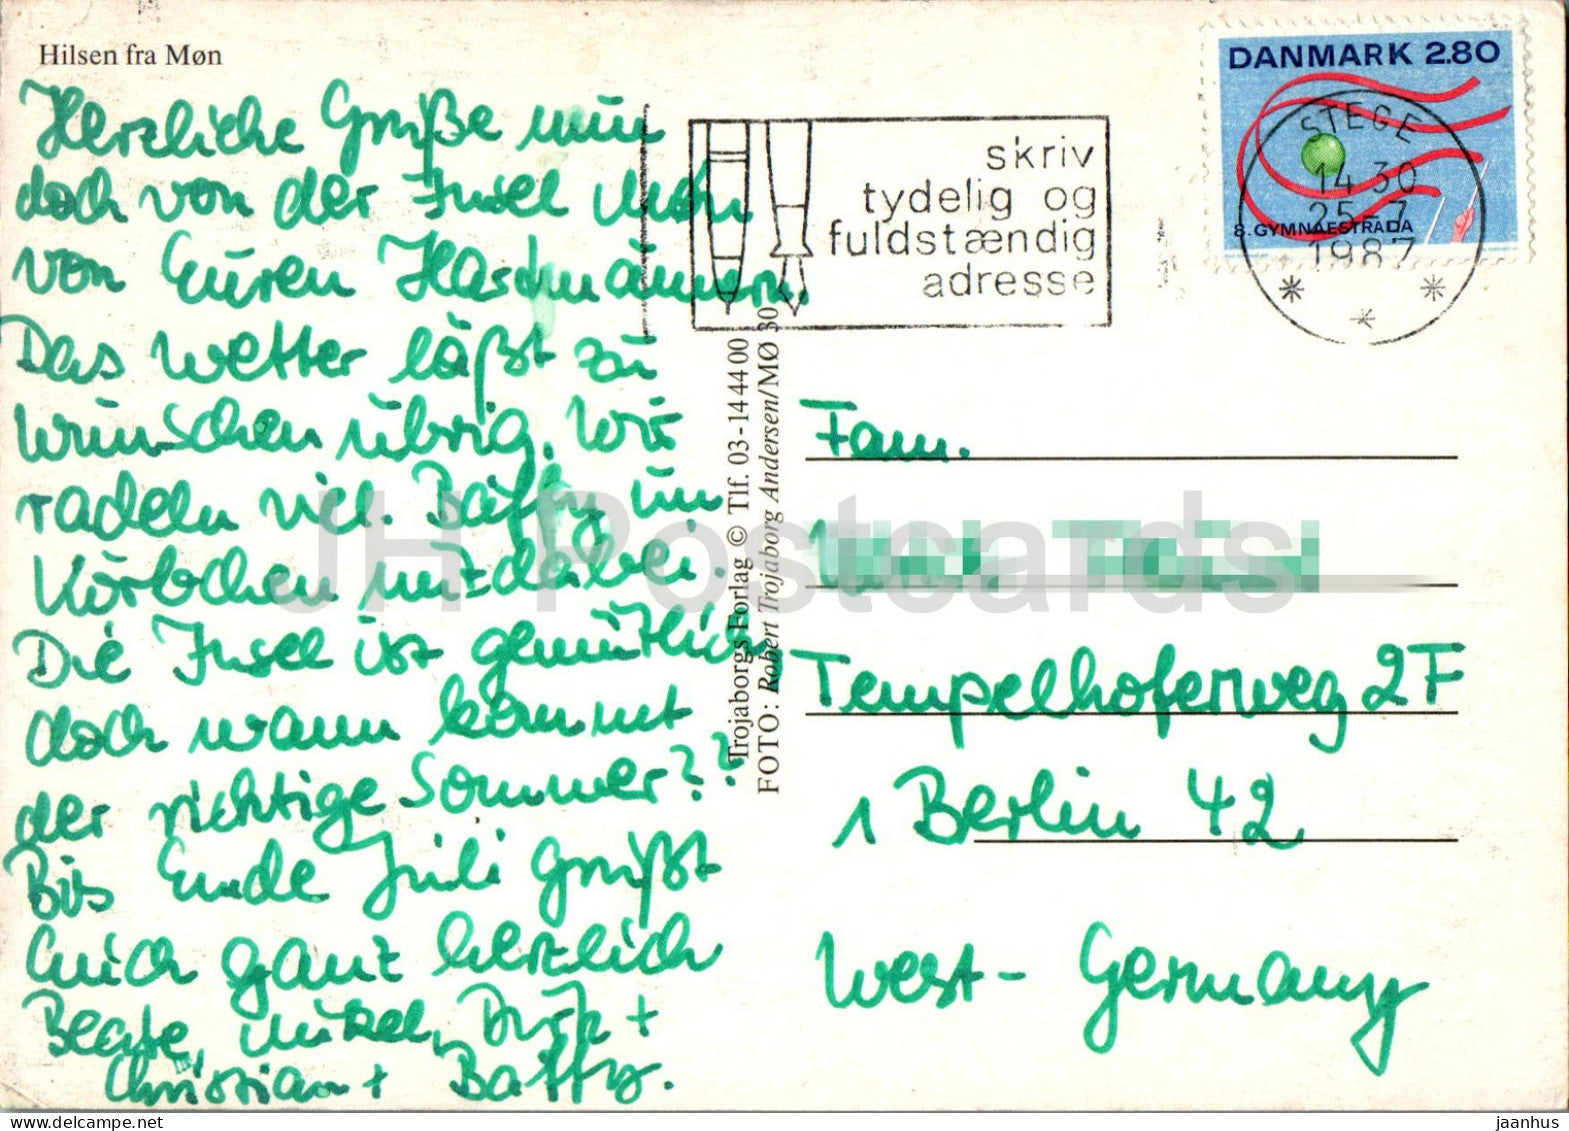 Hilsen fra Møn
Herzliche Grüße nun
doch von der Insel Møn
von Euren Hardmännern.
Das Wetter läßt zu
wünschen übrig. Wir
radeln viel. Baffy im
Körbchen mit dabei.
Die Insel ist gemütlich,
doch wann kommt
der richtige Sommer??
Bis Ende Juli grüßt
Euch ganz herzlich
Beate, Michael, Dirk +
Christian + Baffy.
Trojaborgs Forlag © Tlf. 03-14 44 00
FOTO: Robert Trojaborg Andersen/MØ 30
skriv
tydelig og
fuldstændig
adresse
DANMARK 2.80
8. GYMNAESTRADA
STEGE
14 30
25-7
1987
Fam.
Tempelhoferweg 2F
1 Berlin 42
West-Germany
JH Postcards
delcampe.net
jaanhus